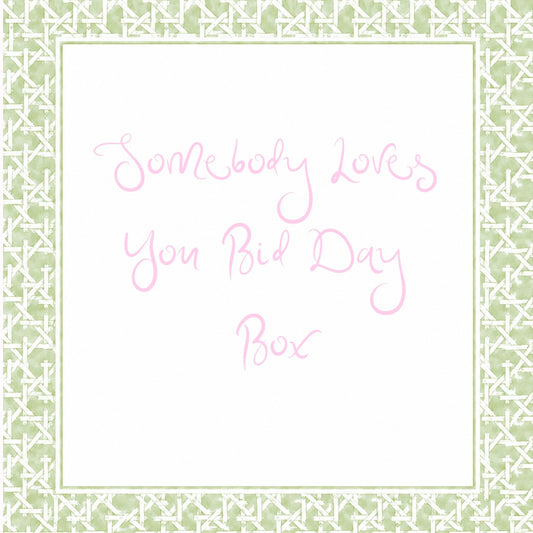 Somebody Loves
You Bid Day
Box